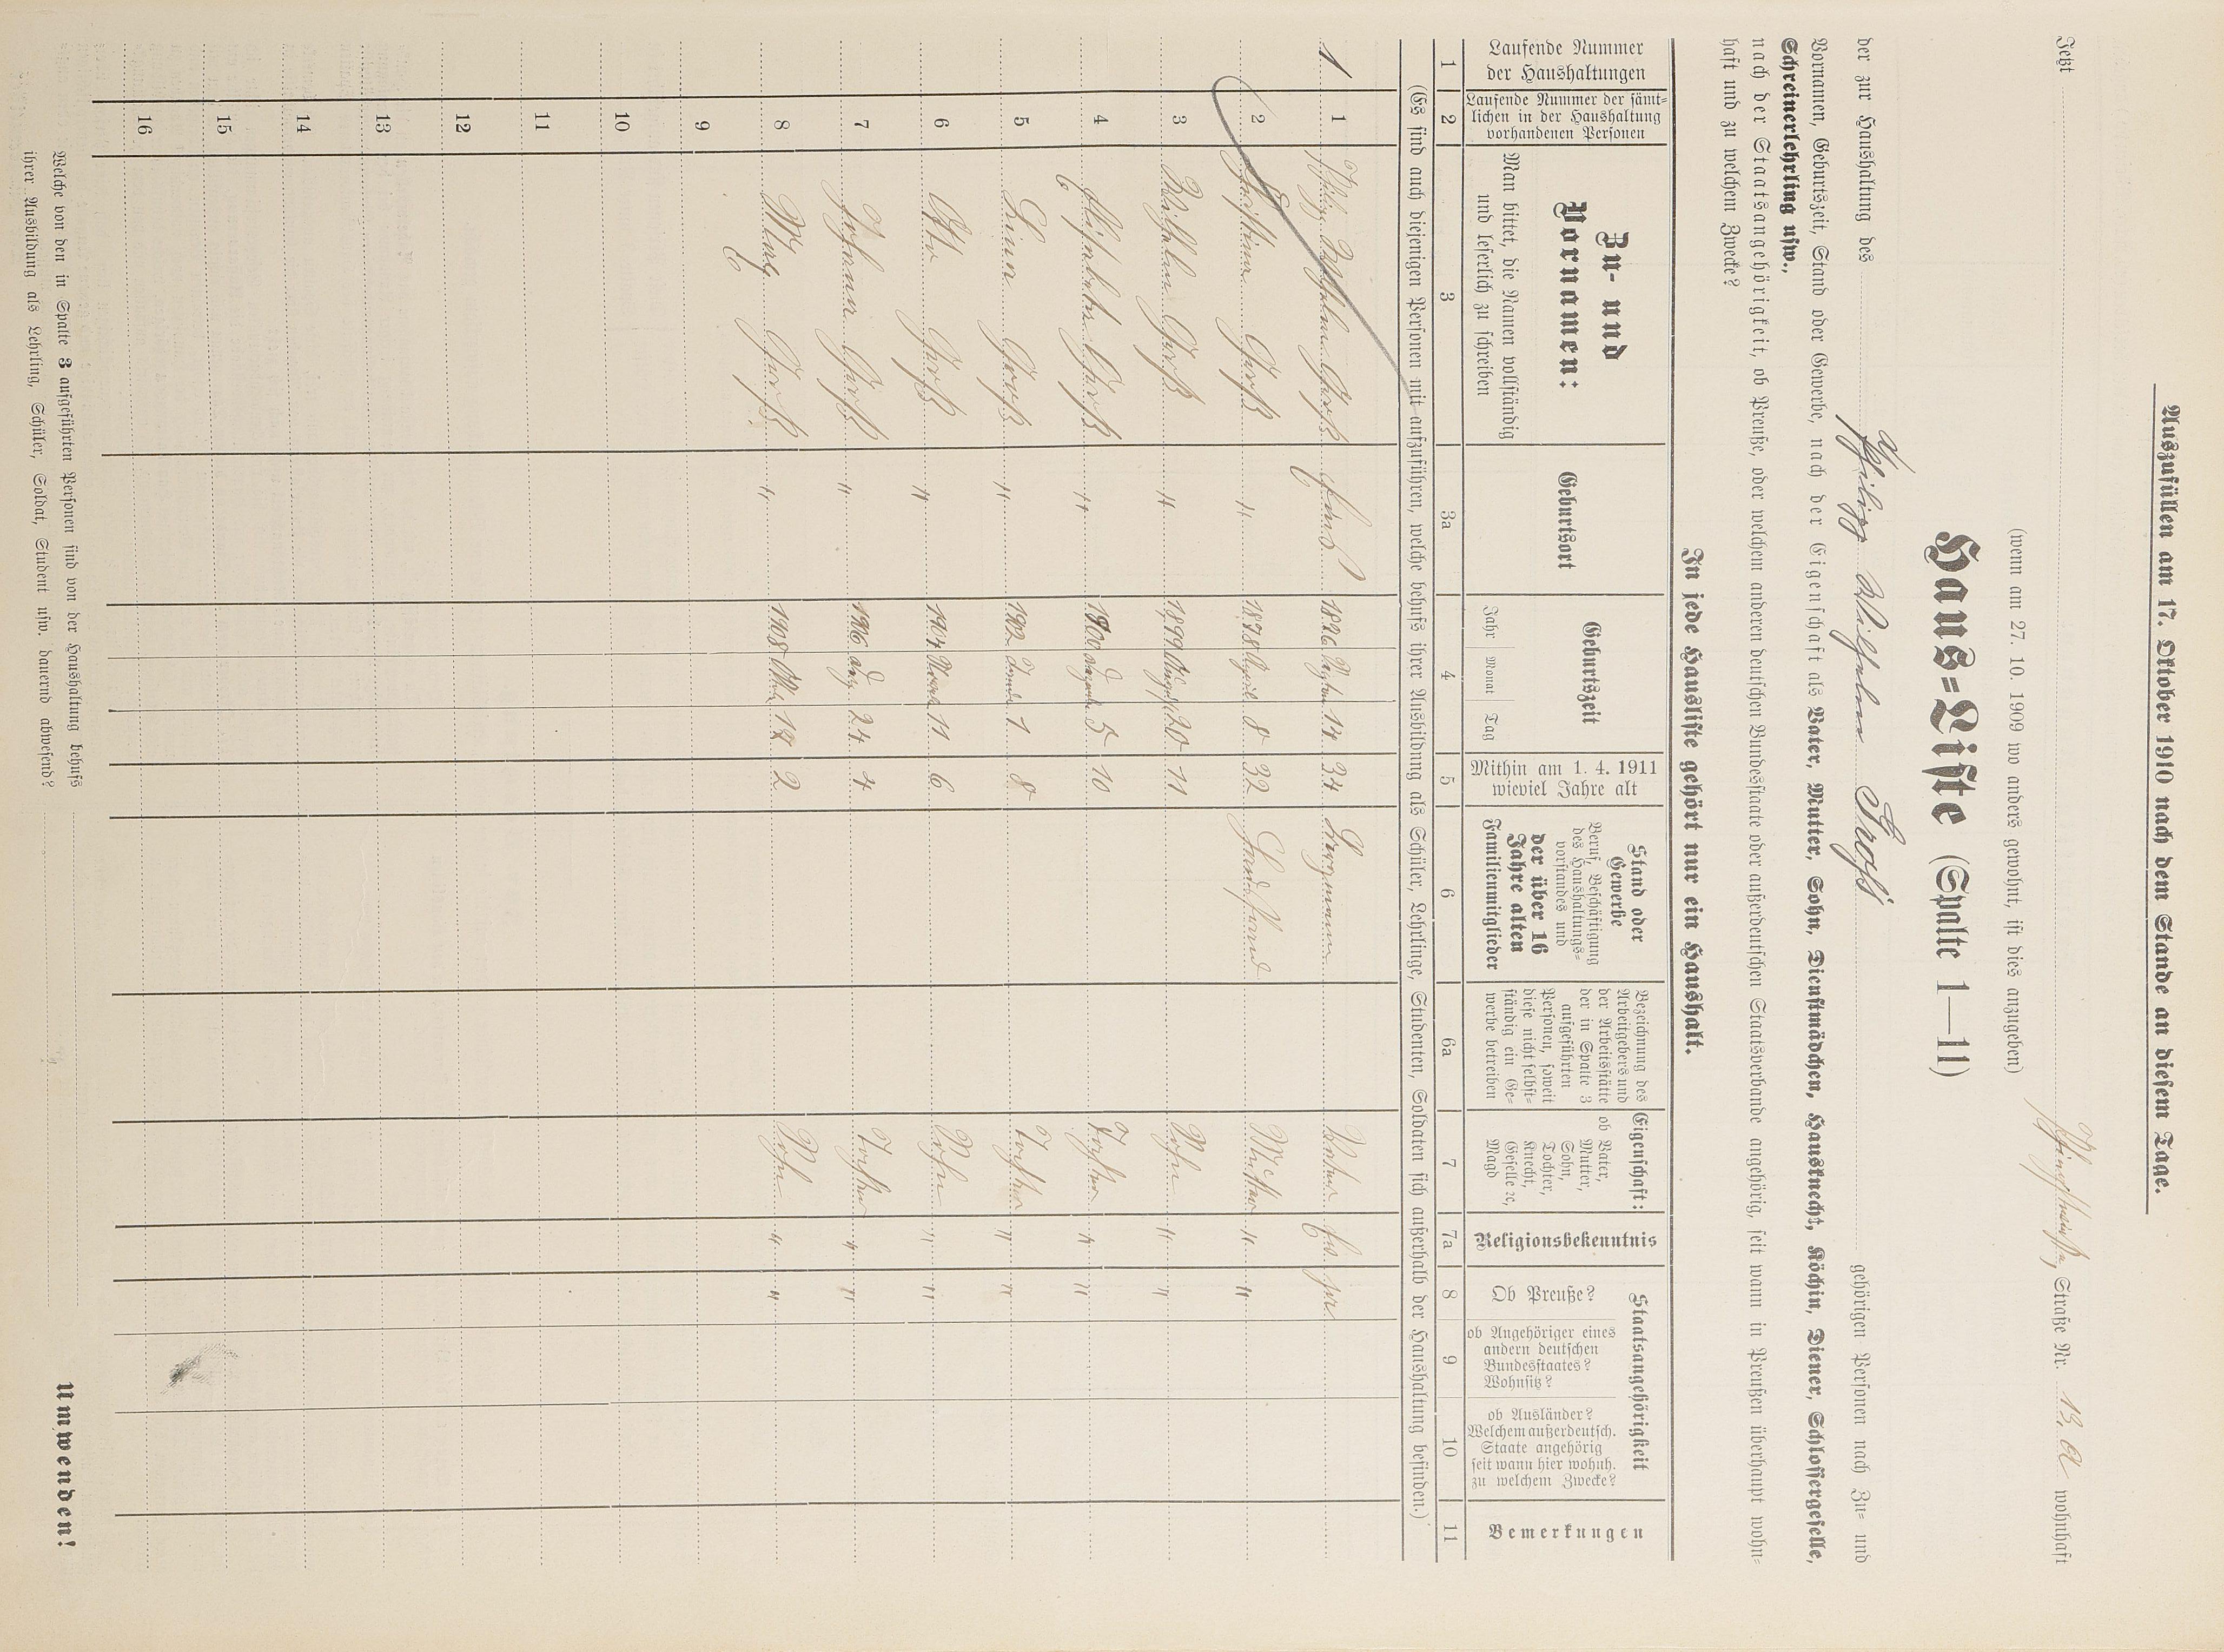 Auszufüllen am 17. Oktober 1910 nach dem Stande an diesem Tage.
Jetzt Straße Nr. 13. a wohnhaft
(wenn am 27. 10. 1909 wo anders gewohnt, ist dies anzugeben)
Haus=Liste (Spalte 1—11)
der zur Haushaltung des Philipp Wilhelm Groß gehörigen Personen nach Zu= und
Vornamen, Geburtszeit, Stand oder Gewerbe, nach der Eigenschaft als Vater, Mutter, Sohn, Dienstmädchen, Hausknecht, Köchin, Diener, Schlossergeselle,
Schreinerlehrling usw.,
nach der Staatsangehörigkeit, ob Preuße, oder welchem anderen deutschen Bundesstaate oder außerdeutschen Staatsverbande angehörig, seit wann in Preußen überhaupt wohn=
haft und zu welchem Zwecke?
In jede Hausliste gehört nur ein Haushalt.
Laufende Nummer
der Haushaltungen
Laufende Nummer der sämt=
lichen in der Haushaltung
vorhandenen Personen
Zu- und
Vornamen:
Man bittet, die Namen vollständig
und leserlich zu schreiben
Geburtsort
Geburtszeit
Jahr Monat Tag
Mithin am 1. 4. 1911
wieviel Jahre alt
Stand oder
Gewerbe
Beruf, Beschäftigung
des Haushaltungs=
vorstandes und
der über 16
Jahre alten
Familienmitglieder
Bezeichnung des
Arbeitgebers und
der Arbeitsstätte
der in Spalte 3
aufgeführten
Personen, soweit
diese nicht selbst=
ständig ein Ge=
werbe betreiben
Eigenschaft:
ob Vater,
Mutter,
Sohn,
Tochter,
Knecht,
Geselle ec,
Magd
Religionsbekenntnis
Staatsangehörigkeit
Ob Preuße?
ob Angehöriger eines
andern deutschen
Bundesstaates?
Wohnsitz?
ob Ausländer?
Welchem außerdeutsch.
Staate angehörig
seit wann hier wohnh.
zu welchem Zwecke?
Bemerkungen
1 2 3 3a 4 5 6 6a 7 7a 8 9 10 11
(Es sind auch diejenigen Personen mit aufzuführen, welche behufs ihrer Ausbildung als Schüler, Lehrlinge, Studenten, Soldaten sich außerhalb der Haushaltung befinden.)
1 1 Philipp Wilhelm Groß 1876 14 34 Bergmann Vater Ev. pr.
2 Christina Groß " 1878 April 8 32 Mutter " "
3 Wilhelm Groß " 1899 August 20 11 Sohn " "
4 Elisabeth Groß " 1900 5 10 Tochter " "
5 Lina Groß " 1902 1 8 Tochter " "
6 Otto Groß " 1904 11 6 Sohn " "
7 Johanna Groß " 1906 24 4 Tochter " "
8 Groß " 1908 2 Sohn " "
9
10
11
12
13
14
15
16
Welche von den in Spalte 3 aufgeführten Personen sind von der Haushaltung behufs
ihrer Ausbildung als Lehrling, Schüler, Soldat, Student usw. dauernd abwesend?
Umwenden!